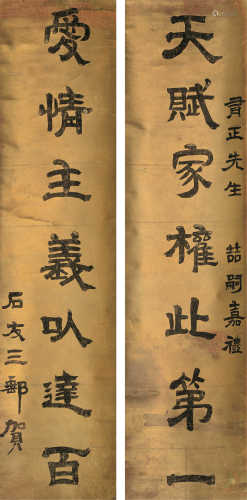 天賦家權此第一
肖正先生 喆嗣嘉禮
愛情主義以達百
石友三鄞賀